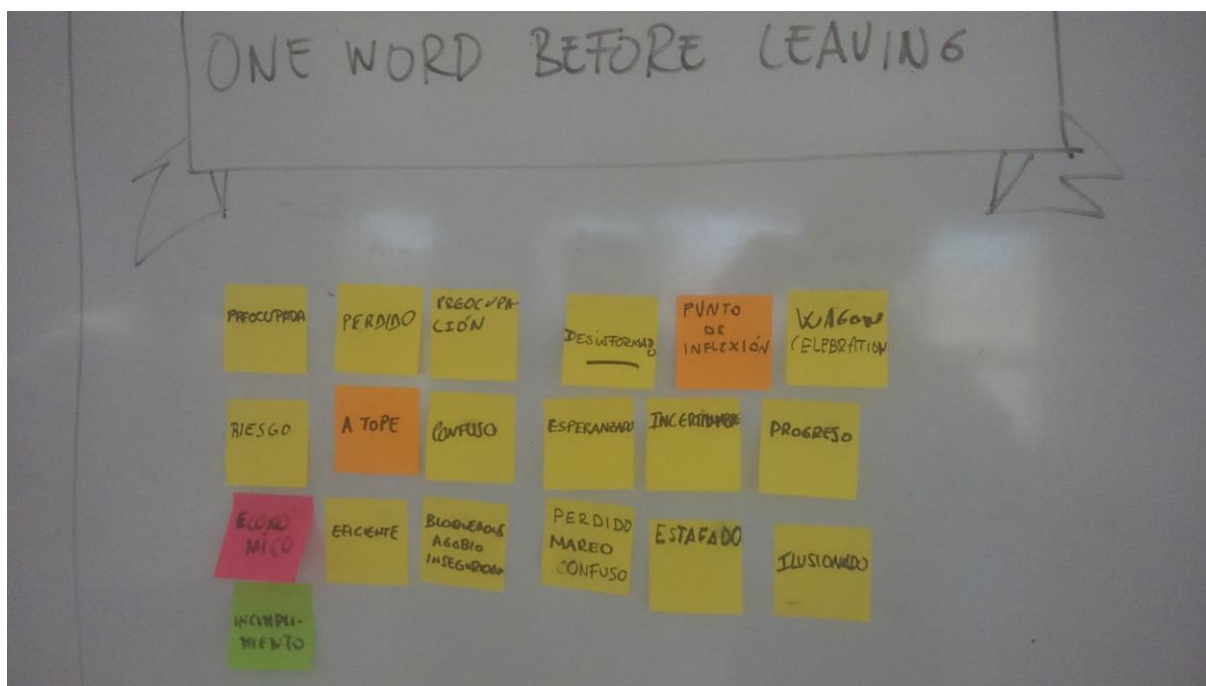 ONE WORD BEFORE LEAVING
PREOCUPADA
PERDIDO
PREOCUPA
CIÓN
DESINFORMADO
PUNTO
DE
INFLEXIÓN
WAGON
CELEBRATION
RIESGO
A TOPE
CONFUSO
ESPERANZADO
INCERTIDUMBRE
PROGRESO
ECONÓ
MICO
EFICIENTE
BLOQUEADOS
AGOBIO
INSEGURIDAD
PERDIDO
MAREO
CONFUSO
ESTAFADO
ILUSIONADO
INCUMPLI-
MIENTO